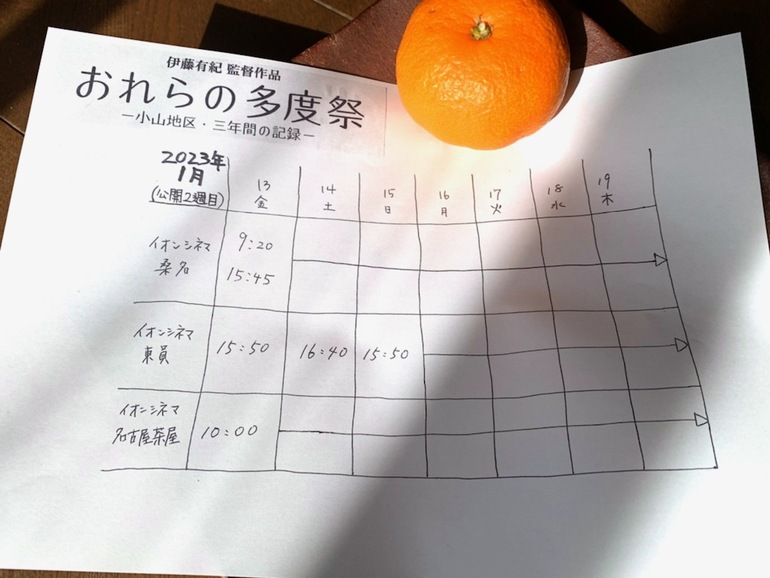 伊藤有紀 監督作品
おれらの多度祭
－小山地区・三年間の記録－
2023年
1月
(公開2週目)
13 14 15 16 17 18 19
金 土 日 月 火 水 木
イオンシネマ
桑名
9:20
15:45
イオンシネマ
東員
15:50 16:40 15:50
イオンシネマ
名古屋茶屋
10:00